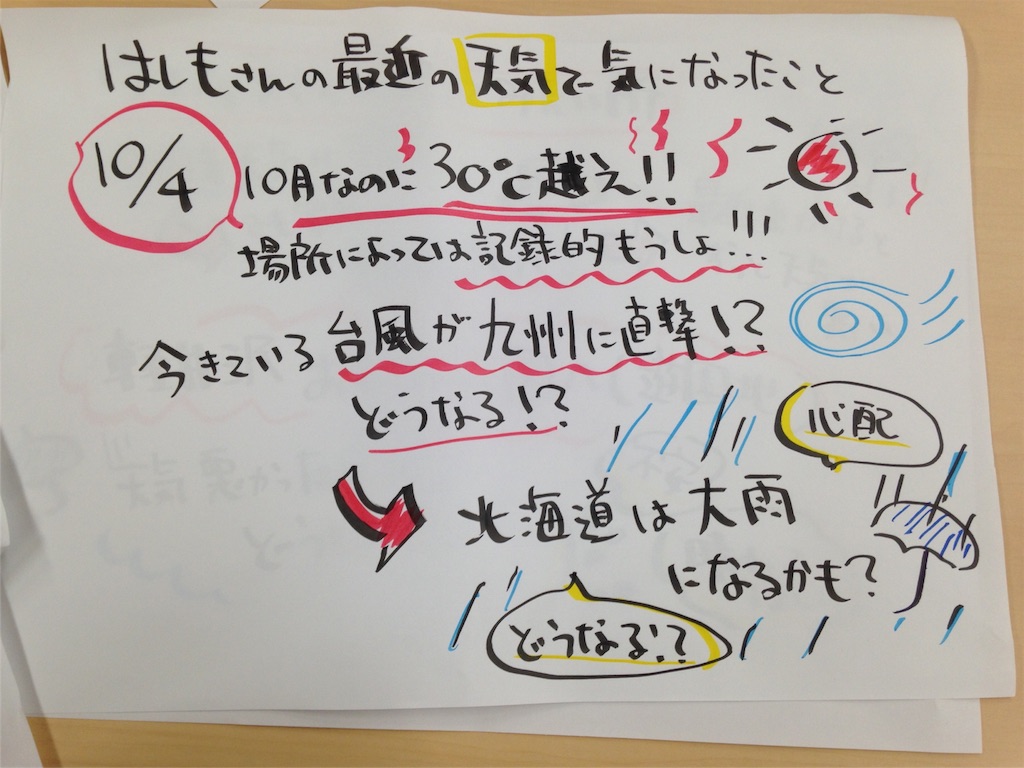 はしもさんの最近の天気で気になったこと
10/4
10月なのに30℃越え!!
場所によっては記録的もうしょ!!!
今きている台風が九州に直撃!?
どうなる!?
心配
北海道は大雨
になるかも?
どうなる!?